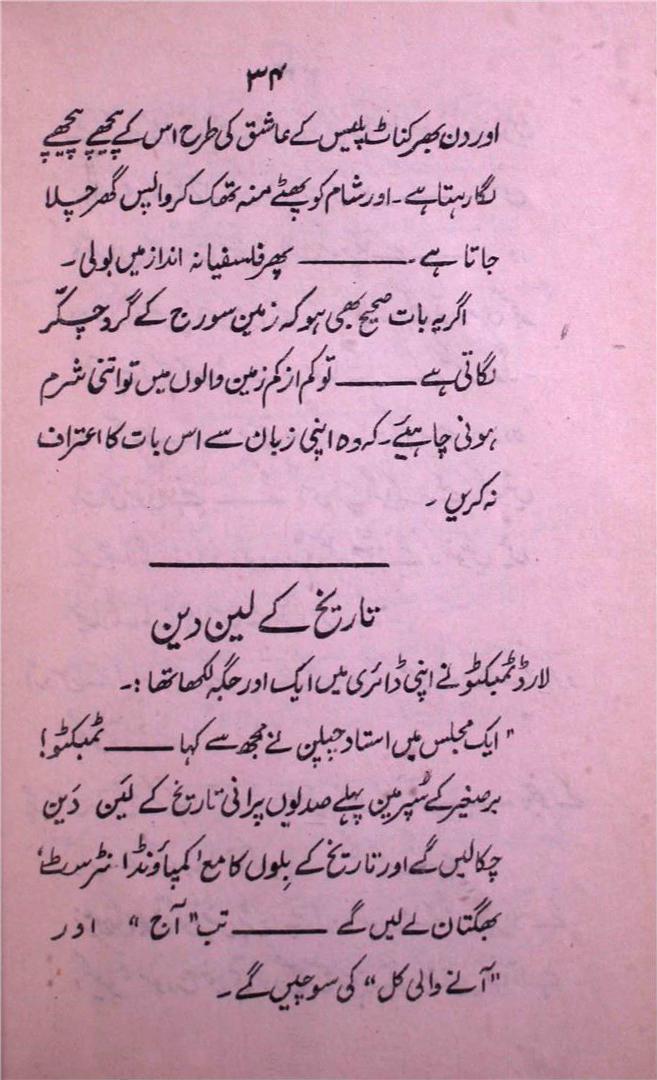 ۳۴
اور دن بھر کناٹ پلیس کے عاشق کی طرح اس کے پیچھے پیچھے
لگا رہتا ہے ۔ اور شام کو پھٹے منہ تھک کر واپس گھر چلا
جاتا ہے ۔ ——— پھر فلسفیانہ انداز میں بولی ۔
اگر یہ بات صحیح بھی ہو کہ زمین سورج کے گرد چکّر
لگاتی ہے ——— تو کم از کم زمین والوں میں تو اتنی شرم
ہونی چاہئیے ۔ کہ وہ اپنی زبان سے اس بات کا اعتراف
نہ کریں ۔
تاریخ کے لین دین
لارڈ ٹمبکٹو نے اپنی ڈائری میں ایک اور جگہ لکھا تھا :۔
" ایک مجلس میں استاد جپلن نے مجھ سے کہا ——— ٹمبکٹو !
برصغیر کے سُپر مین پہلے صدیوں پرانی تاریخ کے لَین دَین
چکا لیں گے اور تاریخ کے بِلوں کا مع 'کمپاؤنڈ انٹرسٹ'
بھگتان لے لیں گے ——— تب "آج" اور
"آنے والی کل" کی سوچیں گے ۔